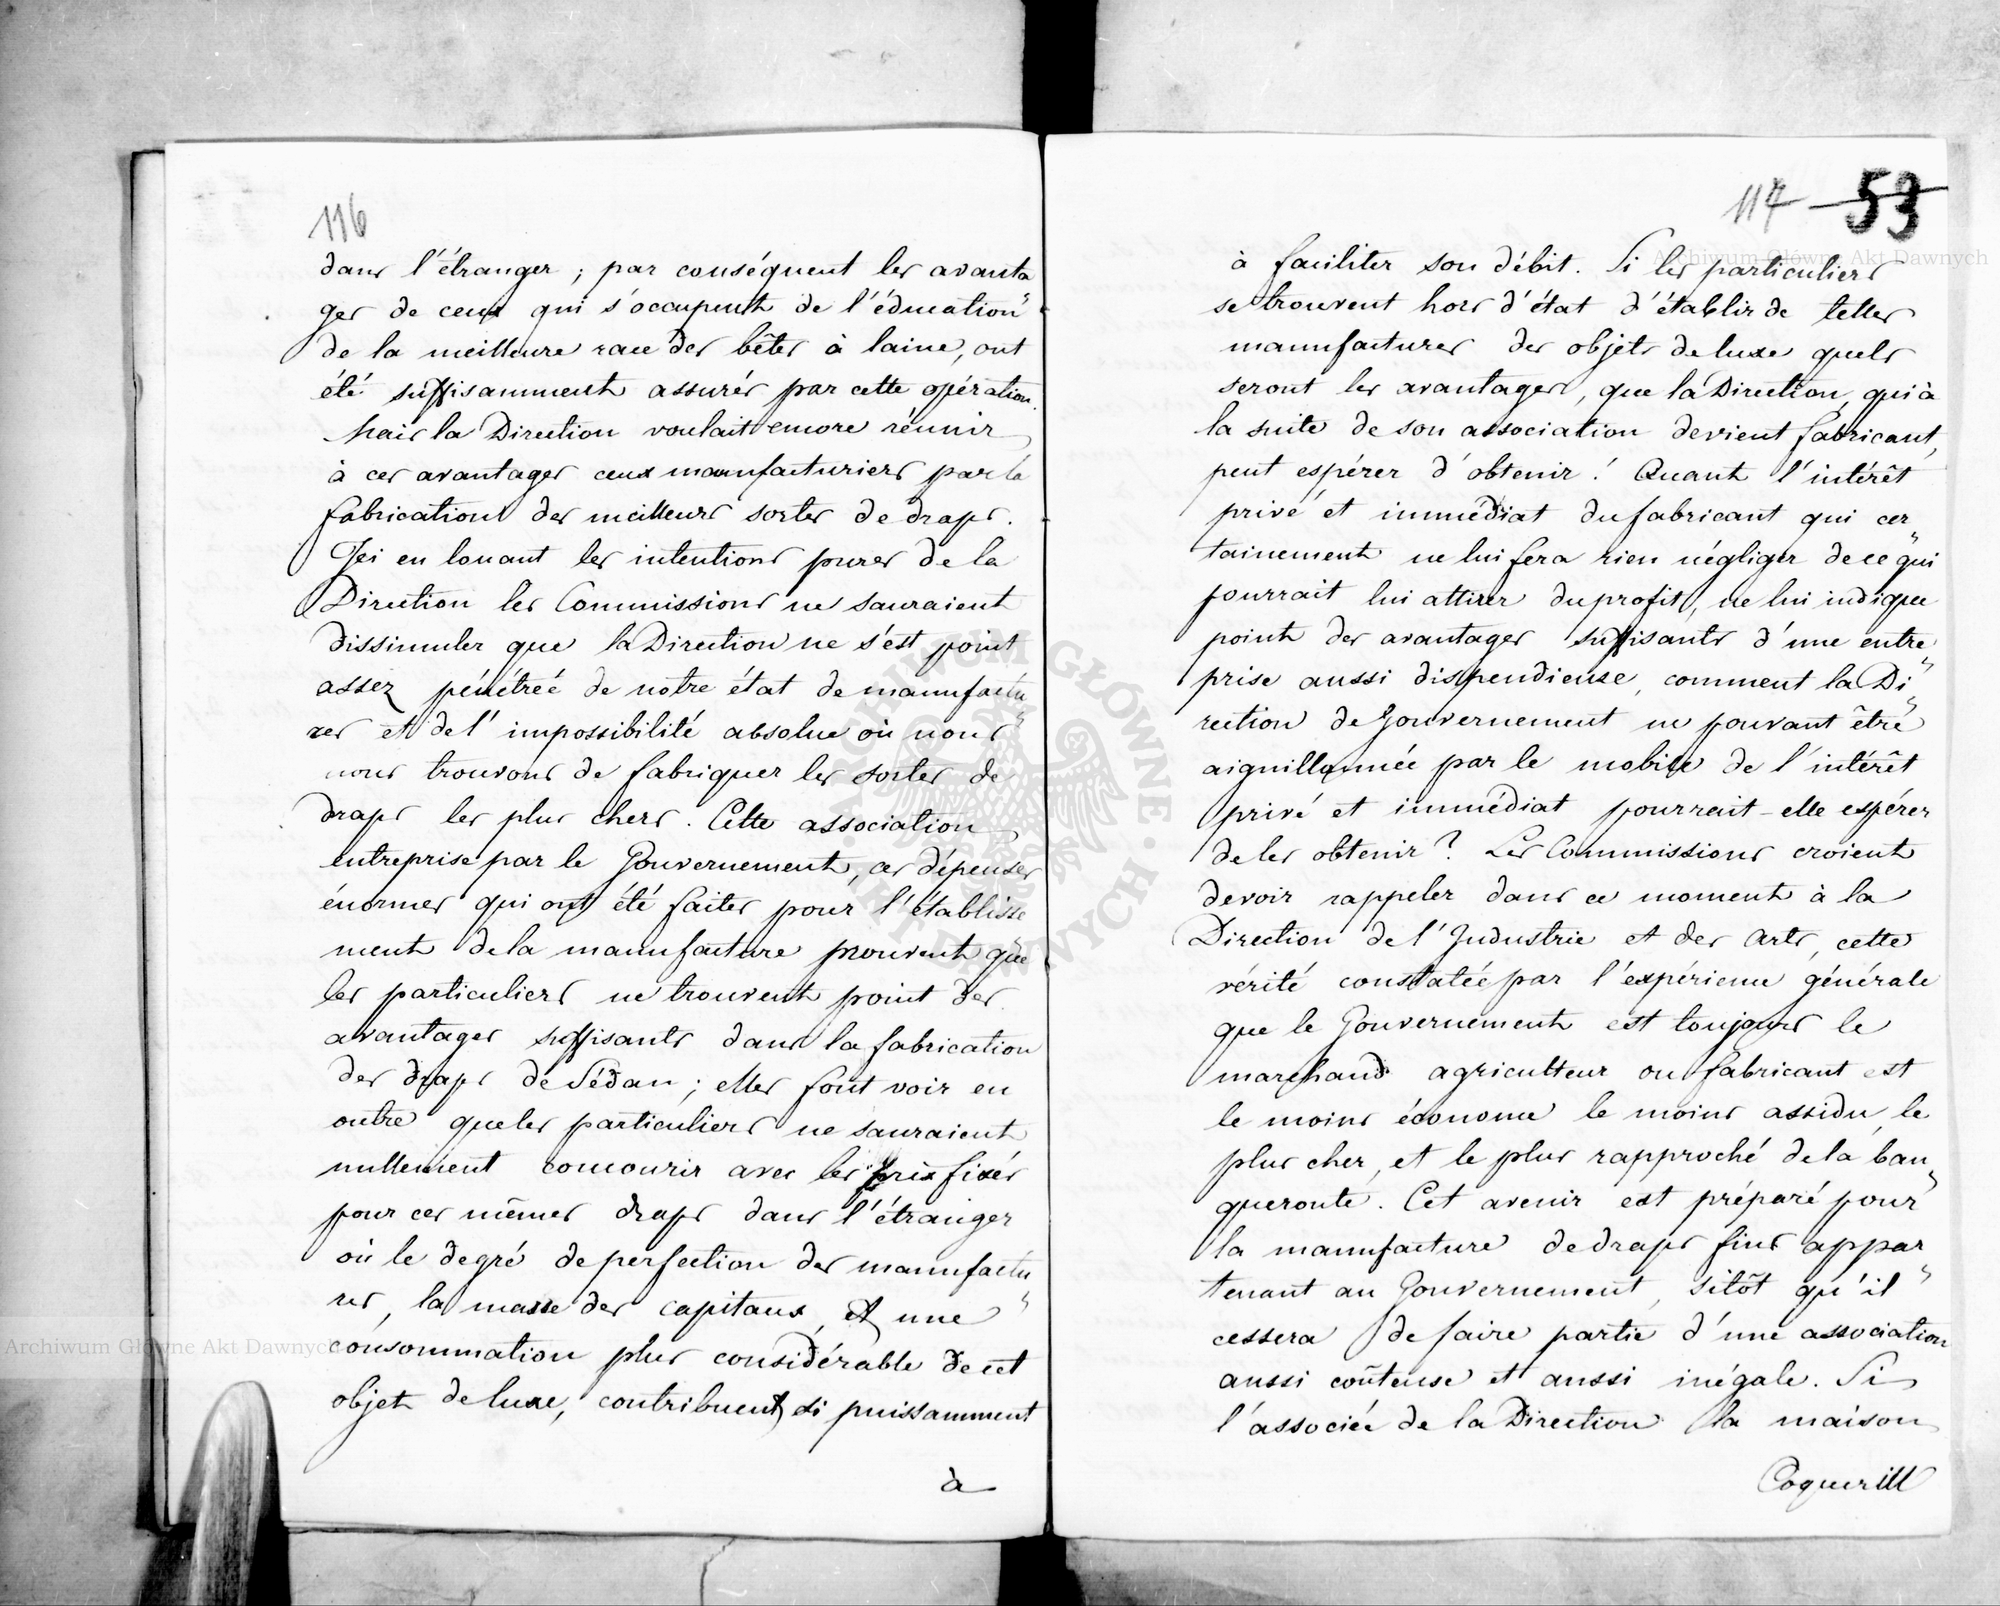 116
dans l'étranger ; par conséquent les avanta
ges de ceux qui s'occupent de l'éducation
de la meilleure race des bêtes à laine, ont
été suffisamment assurés par cette opération.
Mais la Direction voulait encore réunir
à ces avantages ceux manufacturiers par la
fabrication des meilleurs sortes de draps.
Ici en louant les intentions pures de la
Direction les Commissions ne sauraient
dissimuler que la Direction ne s'est point
assez pénétreé de notre état de manufactu„
res et de l'impossibilité absolue où nous
nous trouvons de fabriquer les sortes de
draps les plus chers. Cette association
entreprise par le Gouvernement, ces dépenses
énormes qui ont été faites pour l'établisse„
ment de la manufacture prouvent que
les particuliers ne trouvent point des
avantages suffisants dans la fabrication
des draps de Sédan ; elles font voir en
outre que les particuliers ne sauraient
nullement concourir avec les prix fixés
pour ces mêmes draps dans l'étranger
où le degré de perfection des manufactu„
res, la masse des capitaux, et une
consommation plus considérable de cet
objet de luxe, contribuent si puissamment
à
117 53
à faciliter son débit. Si les particuliers
se trouvent hors d'état d'établir de telles
manufactures des objets de luxe quels
seront les avantages, que la Direction, qui à
la suite de son association devient fabricant,
peut espérer d'obtenir ! Quant l'intérêt
privé et immédiat du fabricant qui cer„
tainement ne lui fera rien négliger de ce qui
pourrait lui attirer du profit, ne lui indique
point des avantages suffisants d'une entre„
prise aussi dispendieuse, comment la Di„
rection de Gouvernement ne pouvant être
aiguillonnée par le mobile de l'intérêt
privé et immédiat pourrait-elle espérer
de les obtenir ? Les Commissions croient
devoir rappeler dans ce moment à la
Direction de l'Industrie et des Arts, cette
vérité constateé par l'expérience générale
que le Gouvernement est toujours le
marchand agriculteur ou fabricant est
le moins économe le moins assidu, le
plus cher, et le plus rapproché de la ban„
queroute. Cet avenir est préparé pour
la manufacture de draps fins appar„
tenant au Gouvernement, sitôt qu'il
cessera de faire partie d'une association
aussi coûteuse et aussi inégale. Si
l'associée de la Direction la maison
Coquerill
Archiwum Główne Akt Dawnych
Archiwum Główne Akt Dawnych
ARCHIWUM GŁÓWNE AKT DAWNYCH